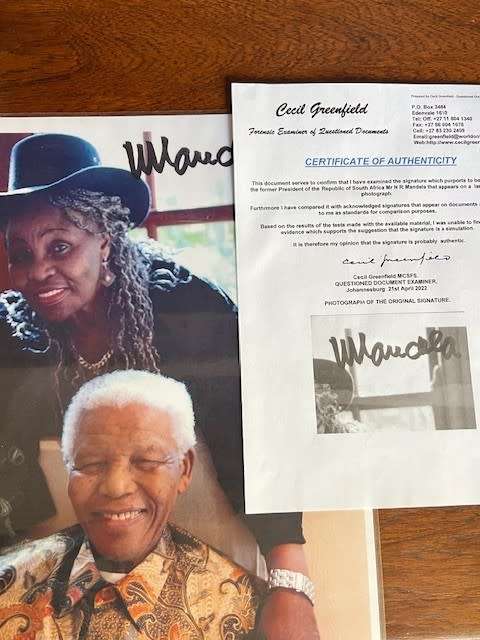 Mandela
Prepared by Cecil Greenfield - Questioned
Cecil Greenfield
Forensic Examiner of Questioned Documents
P.O. Box 3464
Edenvale 1610
Tel: Off: +27 11 804 1340
Fax: +27 86 004 1678
Cell: +27 83 230 2409
Email:greenfield@worldon
Web:http://www.cecilgreen
CERTIFICATE OF AUTHENTICITY
This document serves to confirm that I have examined the signature which purports to be
the former President of the Republic of South Africa Mr N R Mandela that appears on a
photograph.
Furthmore I have compared it with acknowledged signatures that appear on documents
to me as standards for comparison purposes.
Based on the results of the tests made with the available material, I was unable to find
evidence which supports the suggestion that the signature is a simulation.
It is therefore my opinion that the signature is probably authentic.
Cecil Greenfield
Cecil Greenfield MCSFS.
QUESTIONED DOCUMENT EXAMINER,
Johannesburg 21st April 2022
PHOTOGRAPH OF THE ORIGINAL SIGNATURE.
Mandela